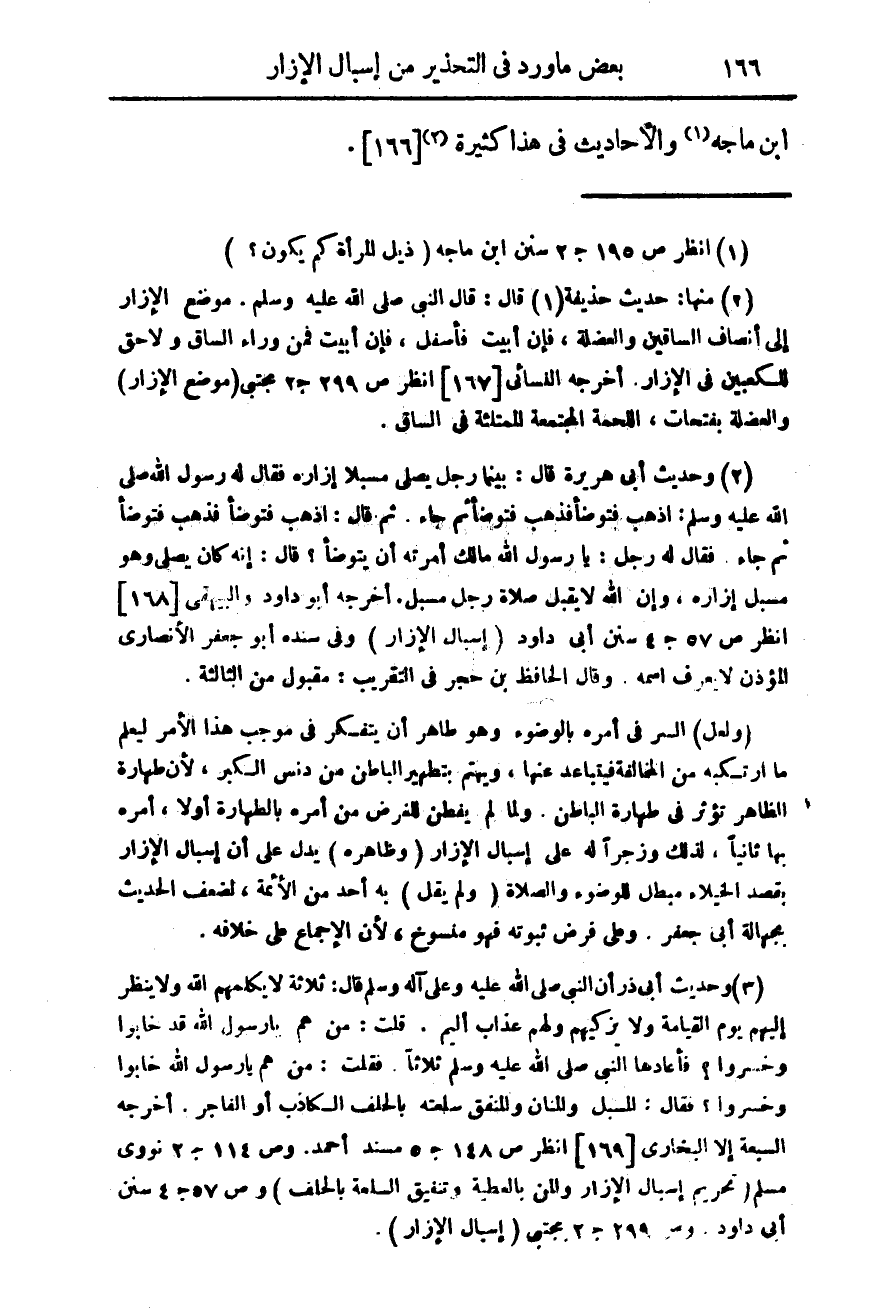 ١٦٦ بعض ماورد فى التحذير من إسبال الإزار
ابن ماجه (١) والأحاديث فى هذا كثيرة (٢) [١٦٦] .
(١) انظر ص ١٩٥ ج ٢ سنن ابن ماجه ( ذيل المرأة كم يكون ؟ )
(٢) منها: حديث حذيفة(١) قال : قال النبى صلى الله عليه وسلم . موضع الإزار
إلى أنصاف الساقين والعضلة ، فإن أبيت فأسفل ، فإن أبيت فمن وراء الساق و لاحق
للكعبين فى الإزار. أخرجه النسائى [١٦٧] انظر ص ٢٩٩ ج٢ مجتبى (موضع الإزار)
والعضلة بفتحات ، اللحمة المجتمعة الممتلئة فى الساق .
(٢) وحديث أبى هريرة قال : بينما رجل يصلى مسبلا إزاره فقال له رسول الله صلى
الله عليه وسلم: اذهب فتوضأ فذهب فتوضأ ثم جاء . ثم قال : اذهب فتوضأ فذهب فتوضأ
ثم جاء . فقال له رجل : يا رسول الله مالك أمرته أن يتوضأ ؟ قال : إنه كان يصلى وهو
مسبل إزاره ، وإن الله لايقبل صلاة رجل مسبل. أخرجه أبو داود والبيهقى [١٦٨]
انظر ص ٥٧ ج ٤ سنن أبى داود ( إسبال الإزار ) وفى سنده أبو جعفر الأنصارى
المؤذن لايعرف اسمه . وقال الحافظ بن حجر فى التقريب : مقبول من الثالثة .
(ولعل) السر فى أمره بالوضوء وهو طاهر أن يتفكر فى موجب هذا الأمر ليعلم
ما ارتكبه من المخالفة فيتباعد عنها ، ويهتم بتطهير الباطن من دنس الكبر ، لأن طهارة
الظاهر تؤثر فى طهارة الباطن . ولما لم يفطن للغرض من أمره بالطهارة أولا ، أمره
بها ثانياً ، لذلك وزجراً له على إسبال الإزار ( وظاهره ) يدل على أن إسبال الإزار
بقصد الخيلاء مبطل للوضوء والصلاة ( ولم يقل ) به أحد من الأئمة ، لضعف الحديث
بجهالة أبى جعفر . وعلى فرض ثبوته فهو منسوخ ، لأن الإجماع على خلافه .
(٣) وحديث أبى ذر أن النبى صلى الله عليه وعلى آله وسلم قال: ثلاثة لايكلمهم الله ولا ينظر
إليهم يوم القيامة ولا يزكيهم ولهم عذاب أليم . قلت : من هم يارسول الله قد خابوا
وخسروا ؟ فأعادها النبى صلى الله عليه وسلم ثلاثاً . فقلت : من هم يارسول الله خابوا
وخسروا ؟ فقال : المسبل والمنان والمنفق سلعته بالحلف الكاذب أو الفاجر . أخرجه
السبعة إلا البخارى [١٦٩] انظر ص ١٤٨ ج ٥ مسند أحمد. وص ١١٤ ج ٢ نووى
مسلم( تحريم إسبال الإزار والمن بالعطية وتنفيق السلعة بالحلف ) و ص ٥٧ ج ٤ سنن
أبى داود . وص ٢٩٩ ج ٢ مجتبى ( إسبال الإزار ) .